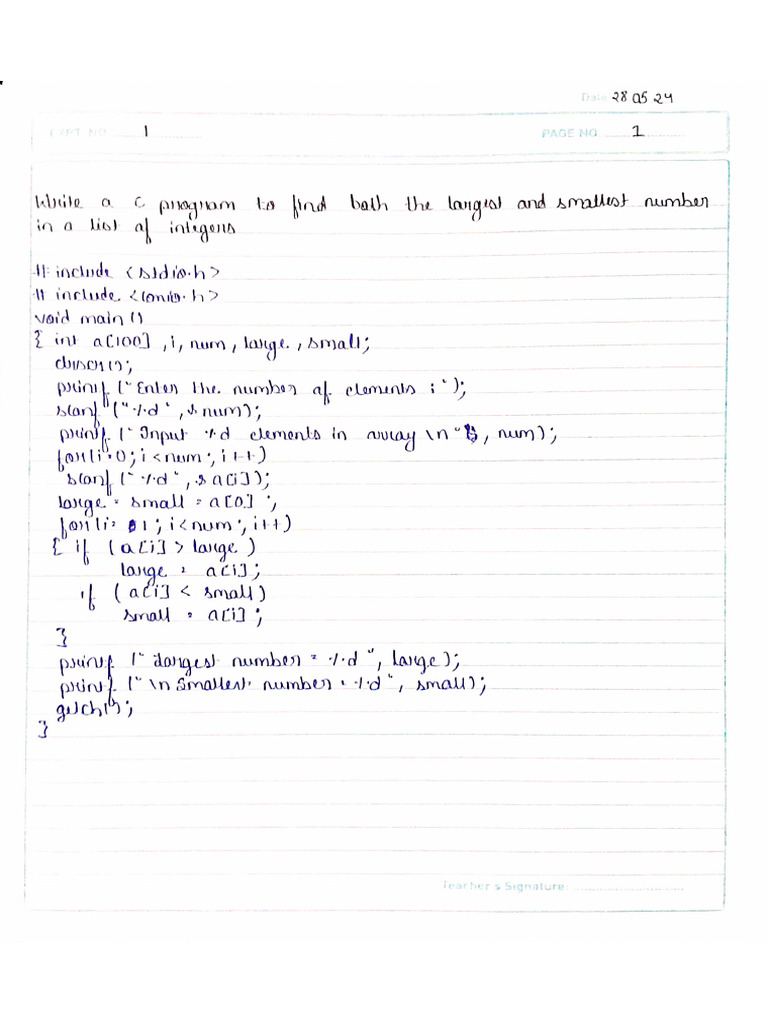 Date 28 05 24
EXPT. NO. 1 PAGE NO. 1
Write a C program to find both the largest and smallest number
in a list of integers
# include <stdio.h>
# include <conio.h>
void main ()
{ int a[100] , i, num, large, small;
clrscr();
printf ("Enter the number of elements : ");
scanf ("%d", & num);
printf ("Input %d elements in array \n ", num);
for(i=0; i<num; i++)
scanf ("%d", & a[i]);
large = small = a[0] ;
for(i= 1; i<num; i++)
{ if (a[i] > large )
large = a[i];
if (a[i] < small)
small = a[i];
}
printf (" Largest number = %d ", large);
printf ("\n Smallest number = %d", small);
getch();
}
Teacher's Signature